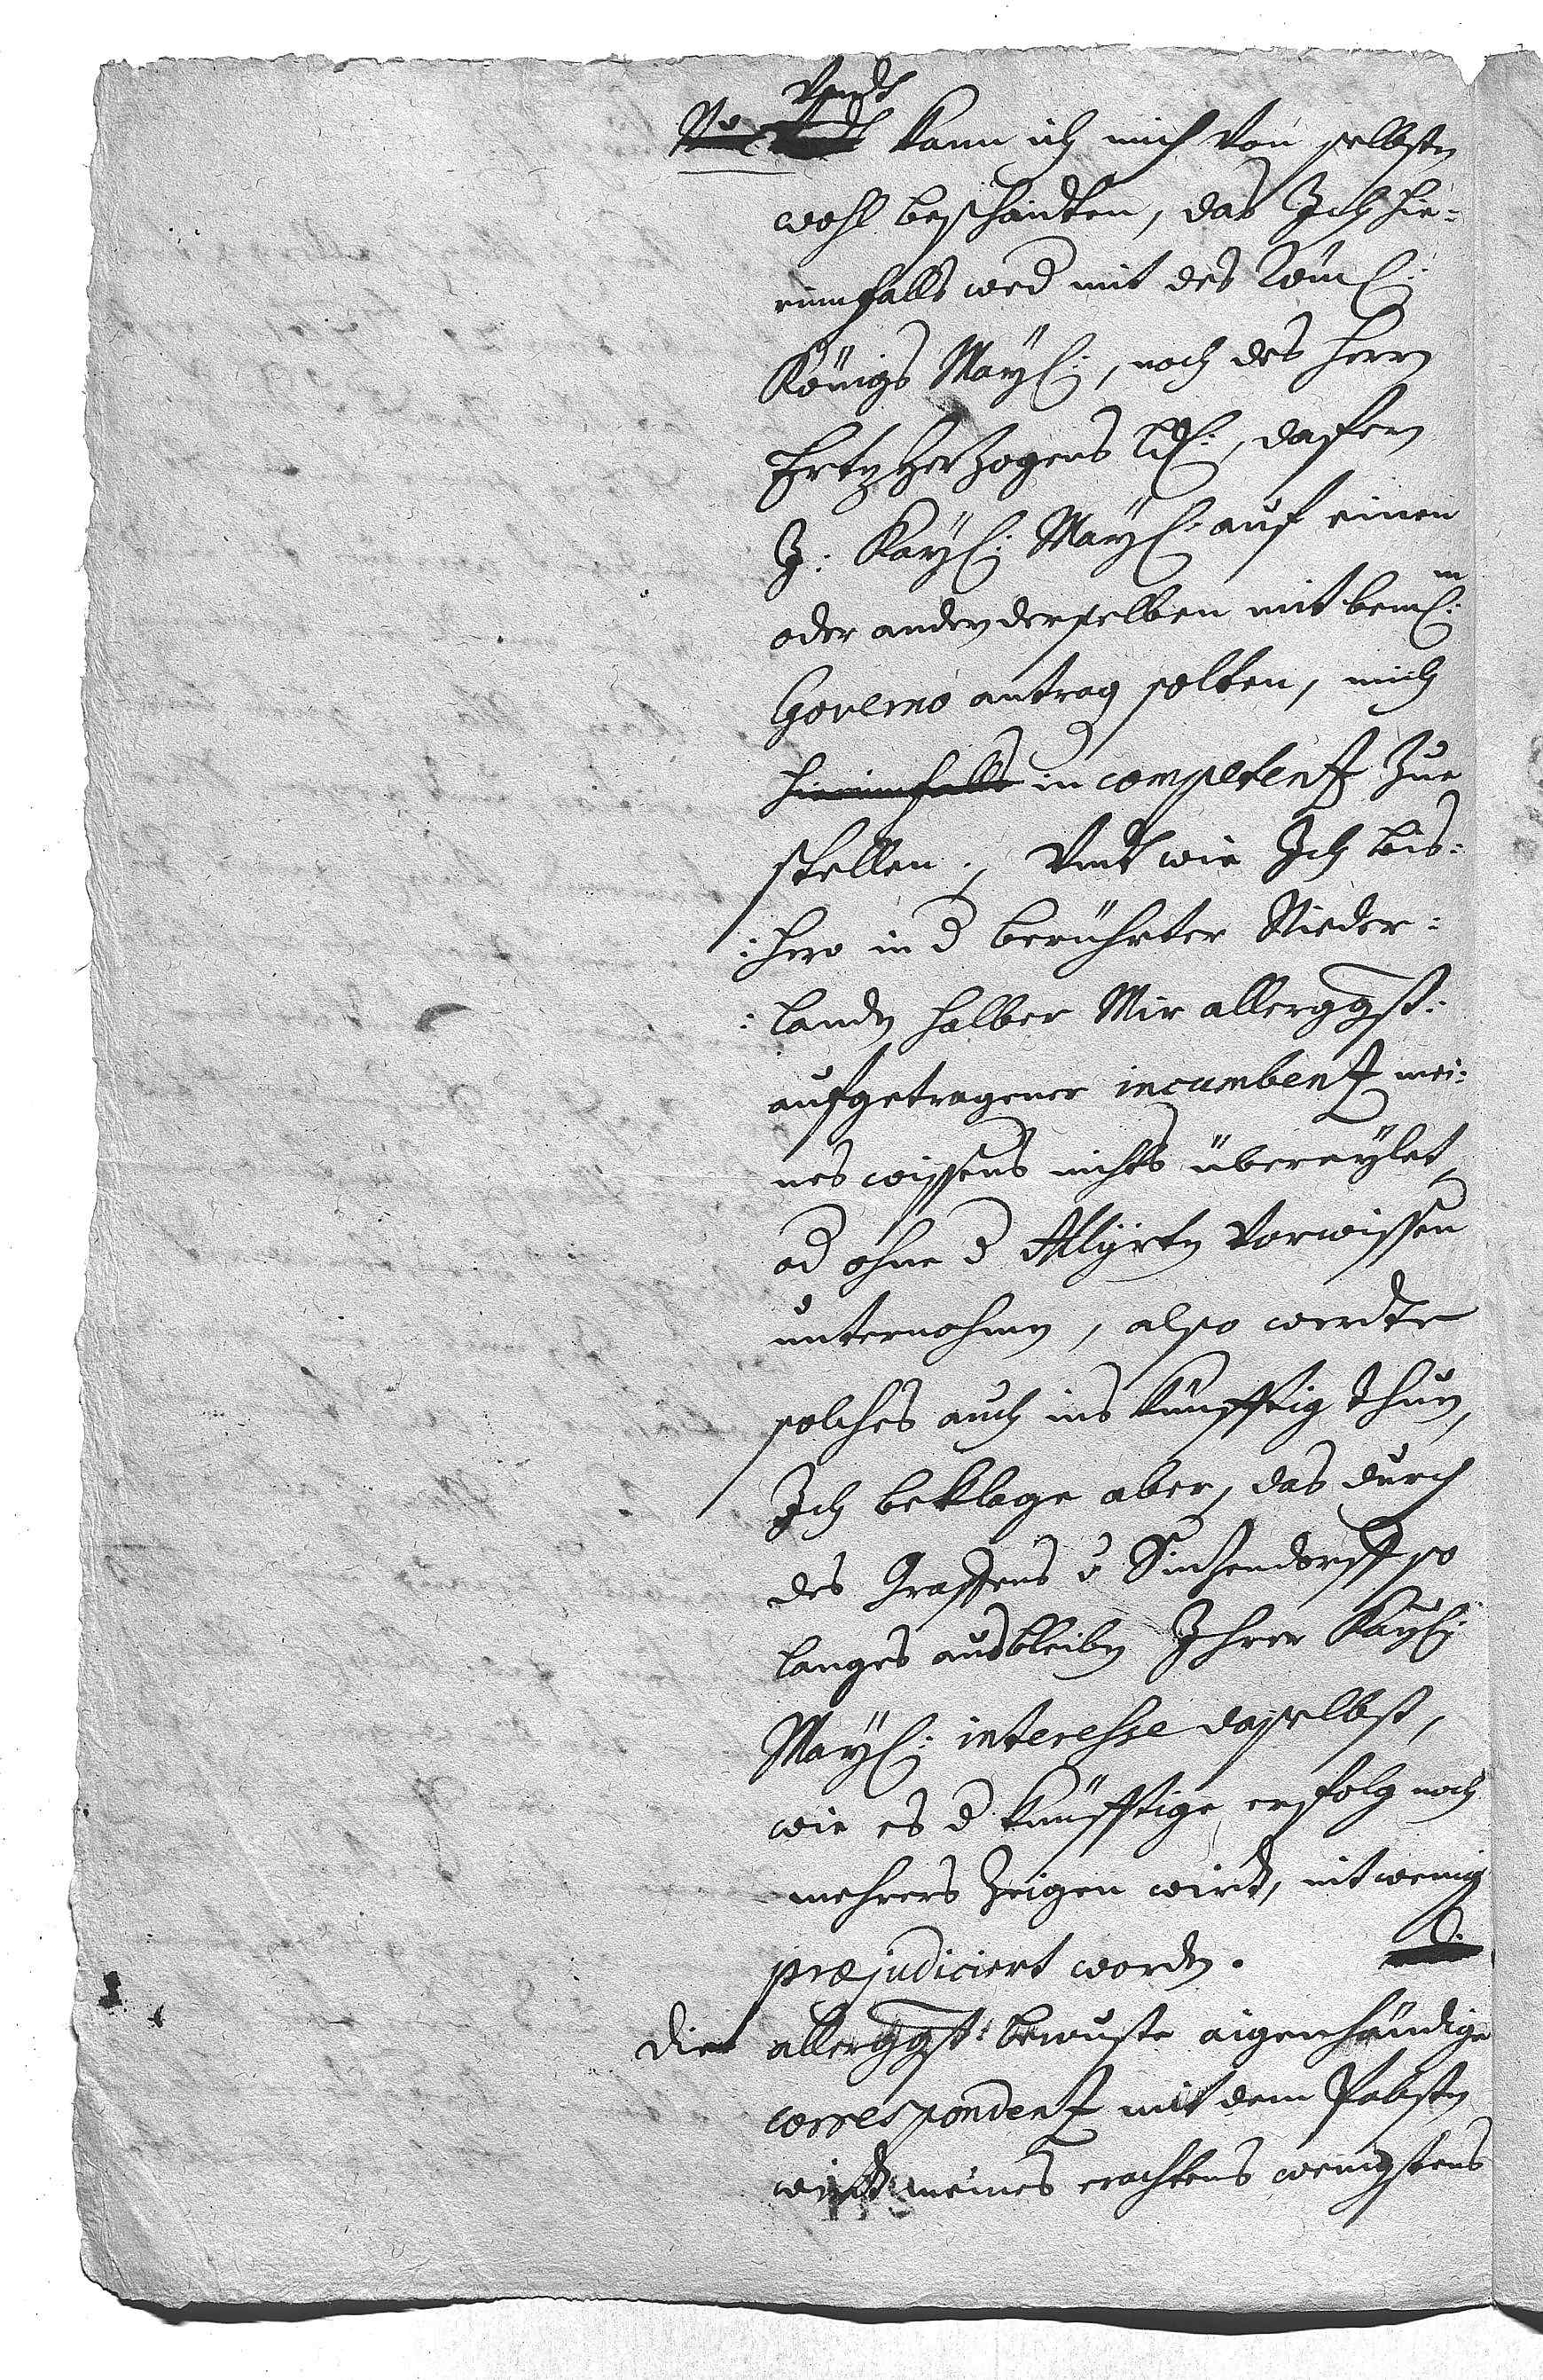 Vndt
kann ich mich von selbsten
wohl beschaidten, das Ich hie=
rinnfalls wed mit des Röm:
Königs May:, noch des Herrn
Ertzherzogens Ld:, dafern
I: Kay: May: auf einen
oder andern derselben mit bem:
Governo antrag solten, mich
hierinnfalls in competenz zue
stellen, Vnd wie Ich bis=
=hero in d berührter Nieder=
=landen halber Mir allerggst:
aufgetragener incumbenz mei=
nes wissens nichts übereylet,
od ohne d Allyrten Vorwissen
unternohmen, also werdte
solches auch ins künfftig thun,
Ich beklage aber, das durch
des Graffens v Sintzendorff so
langes ausbleiben Ihrer Kay:
May: interesse daselbst,
wie es d künfftige erfolg noch
mehrers zeigen wirdt, nit wenig
præjudiciert worden.
Die allerggst: bewuste aigenhändige
correspondenz mit dem Pabsten
wirdt meines erachtens wenigstens